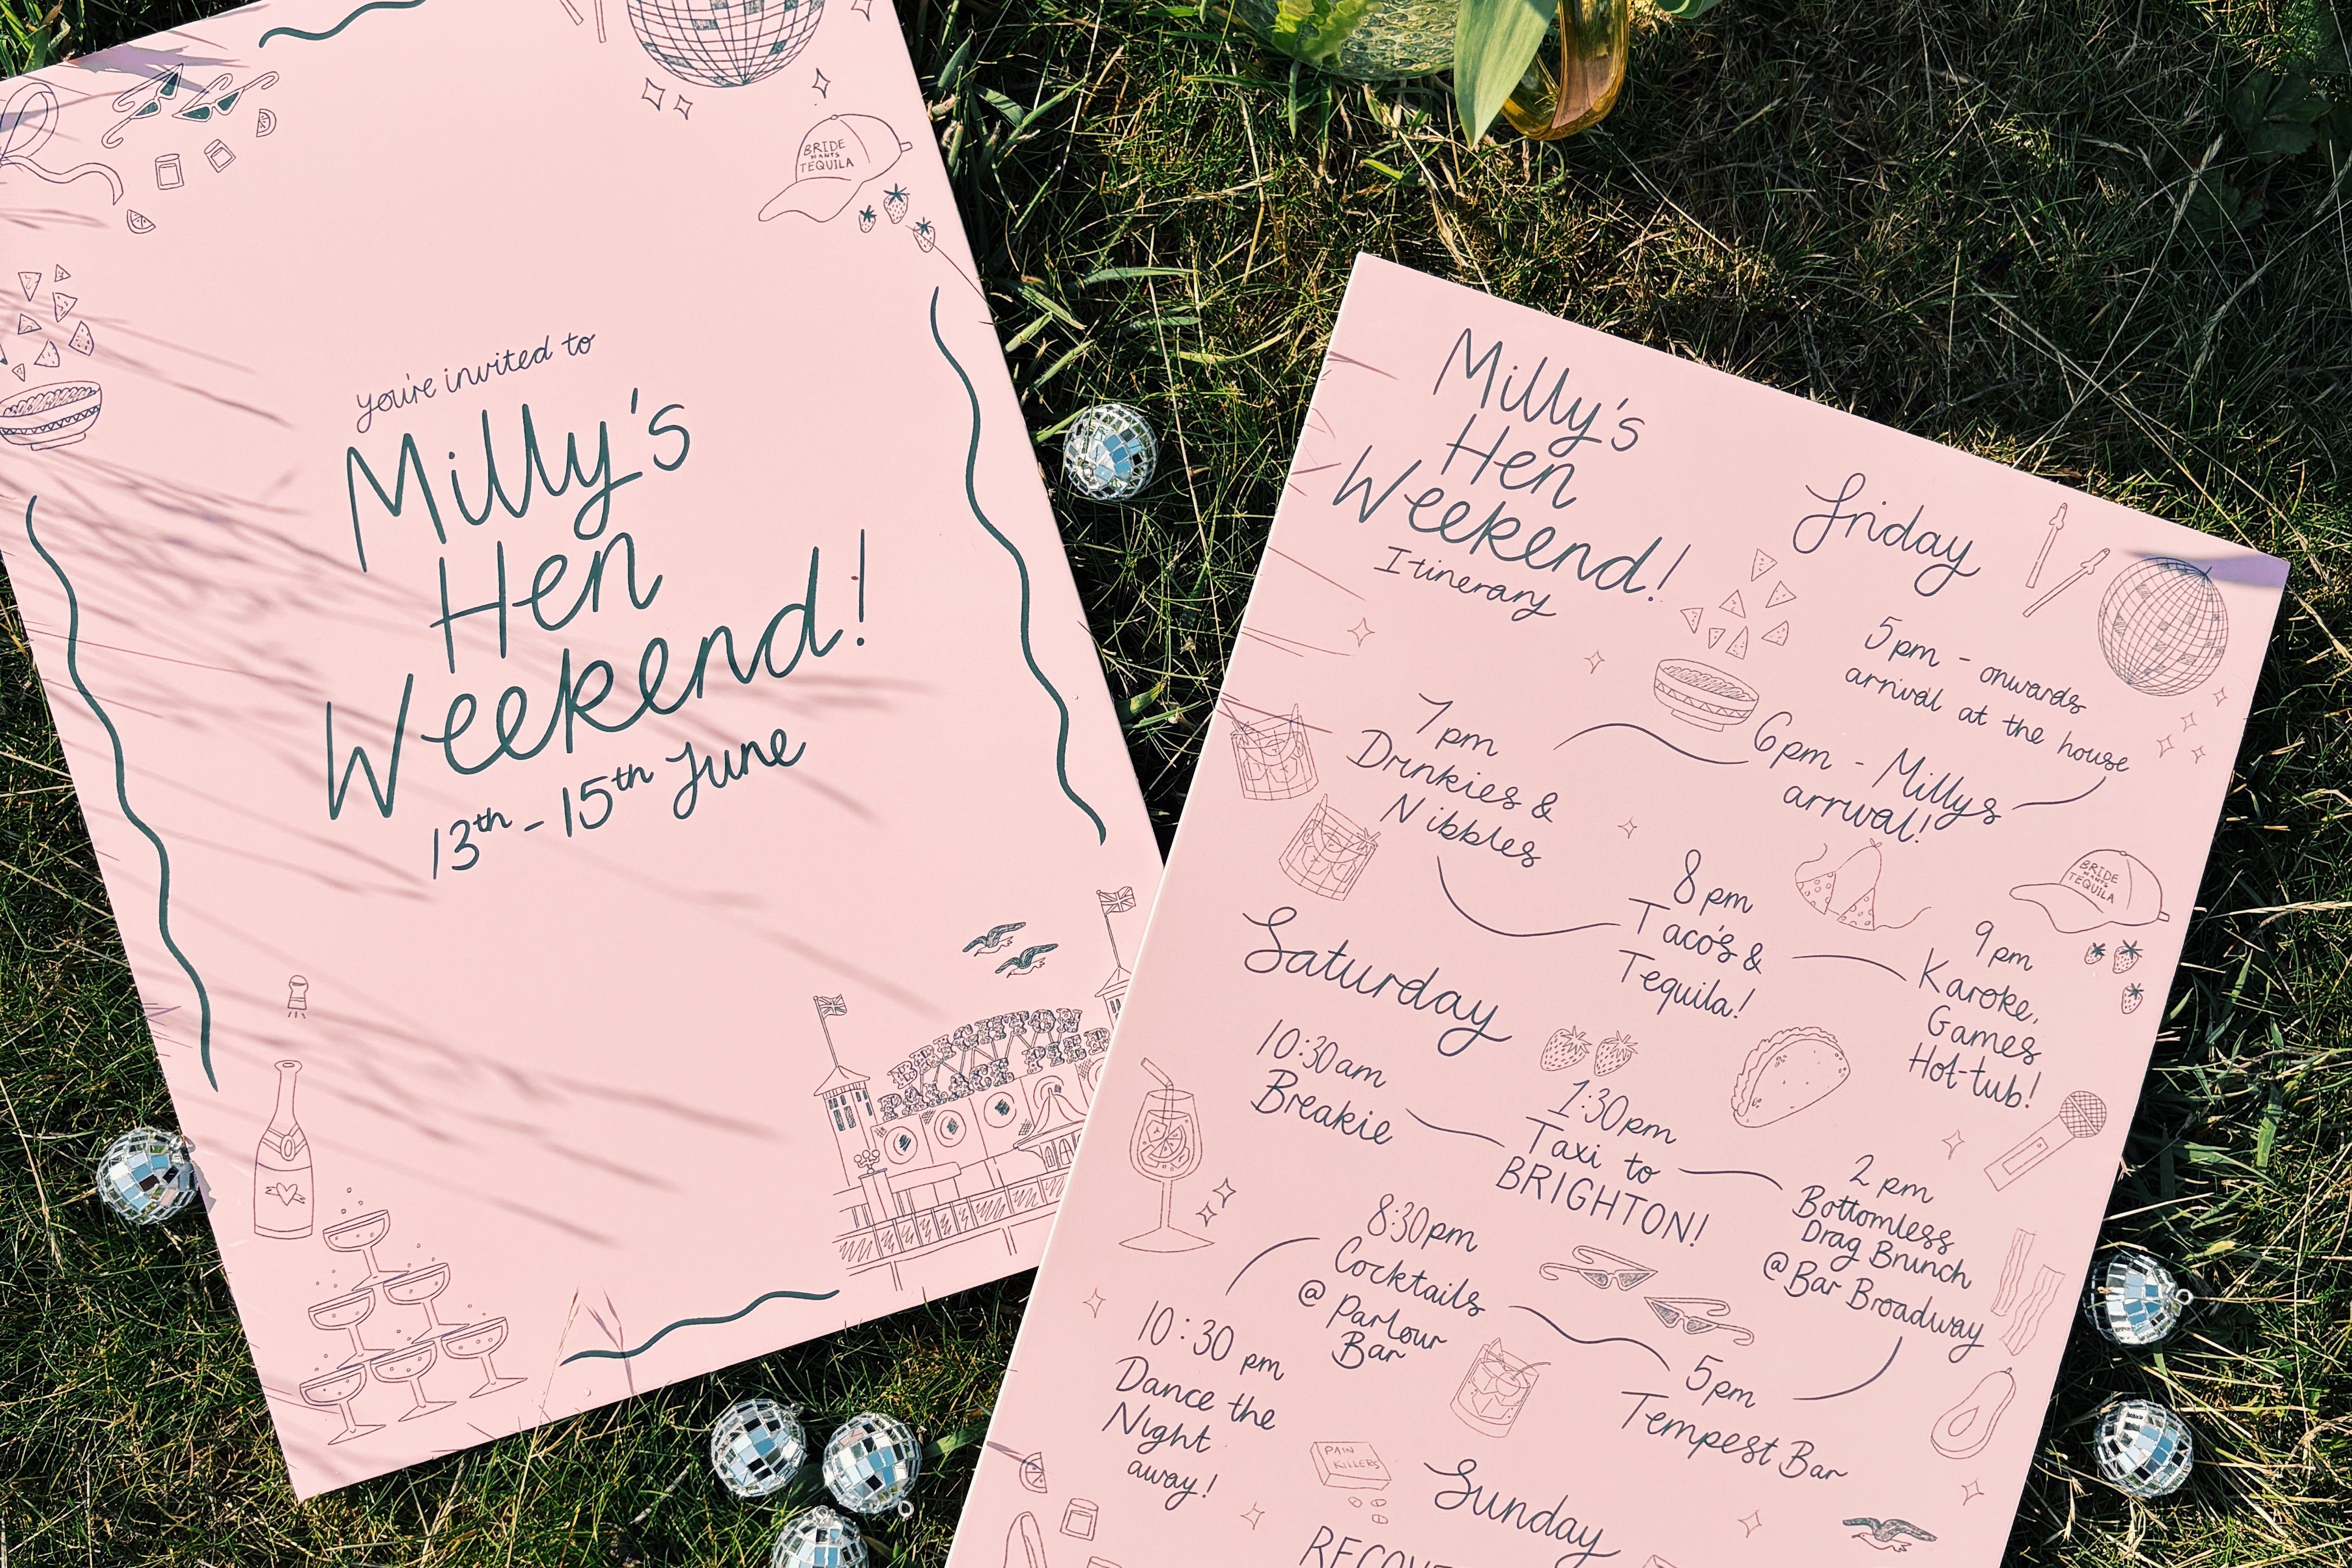 BRIDE
WANTS
TEQUILA
you're invited to
Milly's
Hen
Weekend!
13th - 15th June
BRIGHTON
PALACE PIER
Milly's
Hen
Weekend!
Itinerary
Friday
5pm - onwards
arrival at the house
6pm - Millys
arrival!
7pm
Drinkies &
Nibbles
8pm
Taco's &
Tequila!
BRIDE
WANTS
TEQUILA
9pm
Karoke,
Games
Hot-tub!
Saturday
10:30am
Breakie
1:30pm
Taxi to
BRIGHTON!
2pm
Bottomless
Drag Brunch
@ Bar Broadway
5pm
Tempest Bar
8:30pm
Cocktails
@ Parlour
Bar
10:30 pm
Dance the
Night
away!
PAIN
KILLERS
Sunday